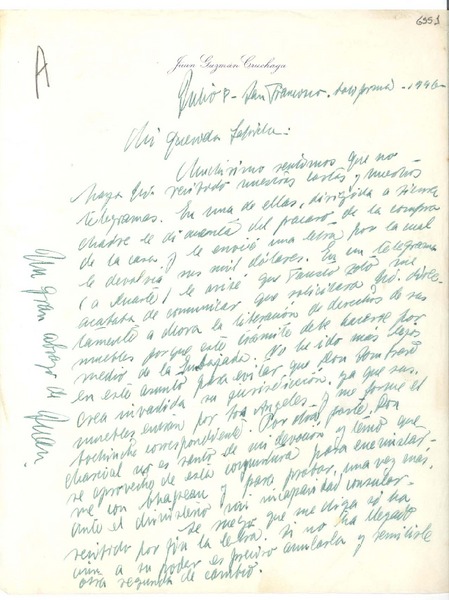 6551
A
Juan Guzmán Cruchaga
Julio 8 - San Francisco - California - 1946 -
Mi querida Gabriela:
Muchísimo sentimos que no
haya Ud. recibido nuestras cartas y nuestros
telegramas. En una de ellas, dirigida a
le di cuenta del fracaso de la compra
de la casa y le envié una letra por la cual
le devolvía sus mil dólares. En un telegrama
(a ) le avisé que Tomic sólo me
acababa de comunicar que solicitara Ud. direc-
tamente a ahora la liberación de derechos de sus
muebles porque este trámite debe hacerse por
medio de la Embajada. No he ido más lejos
en este asunto para evitar que Don
crea invadida su jurisdicción, ya que sus
muebles entran por Los Angeles y me forme el
bochinche correspondiente. Por otra parte, Don
no es santo de mi devoción y temo que
se aproveche de esta coyuntura para enemistar-
me con y para probar, una vez más,
ante el ministerio mi incapacidad consular -
Le ruego que me diga si ha
recibido por fin la letra. Si no ha llegado
aún a su poder es preciso anularla y remitirle
otra segunda de cambio.
Un gran abrazo de
Juan